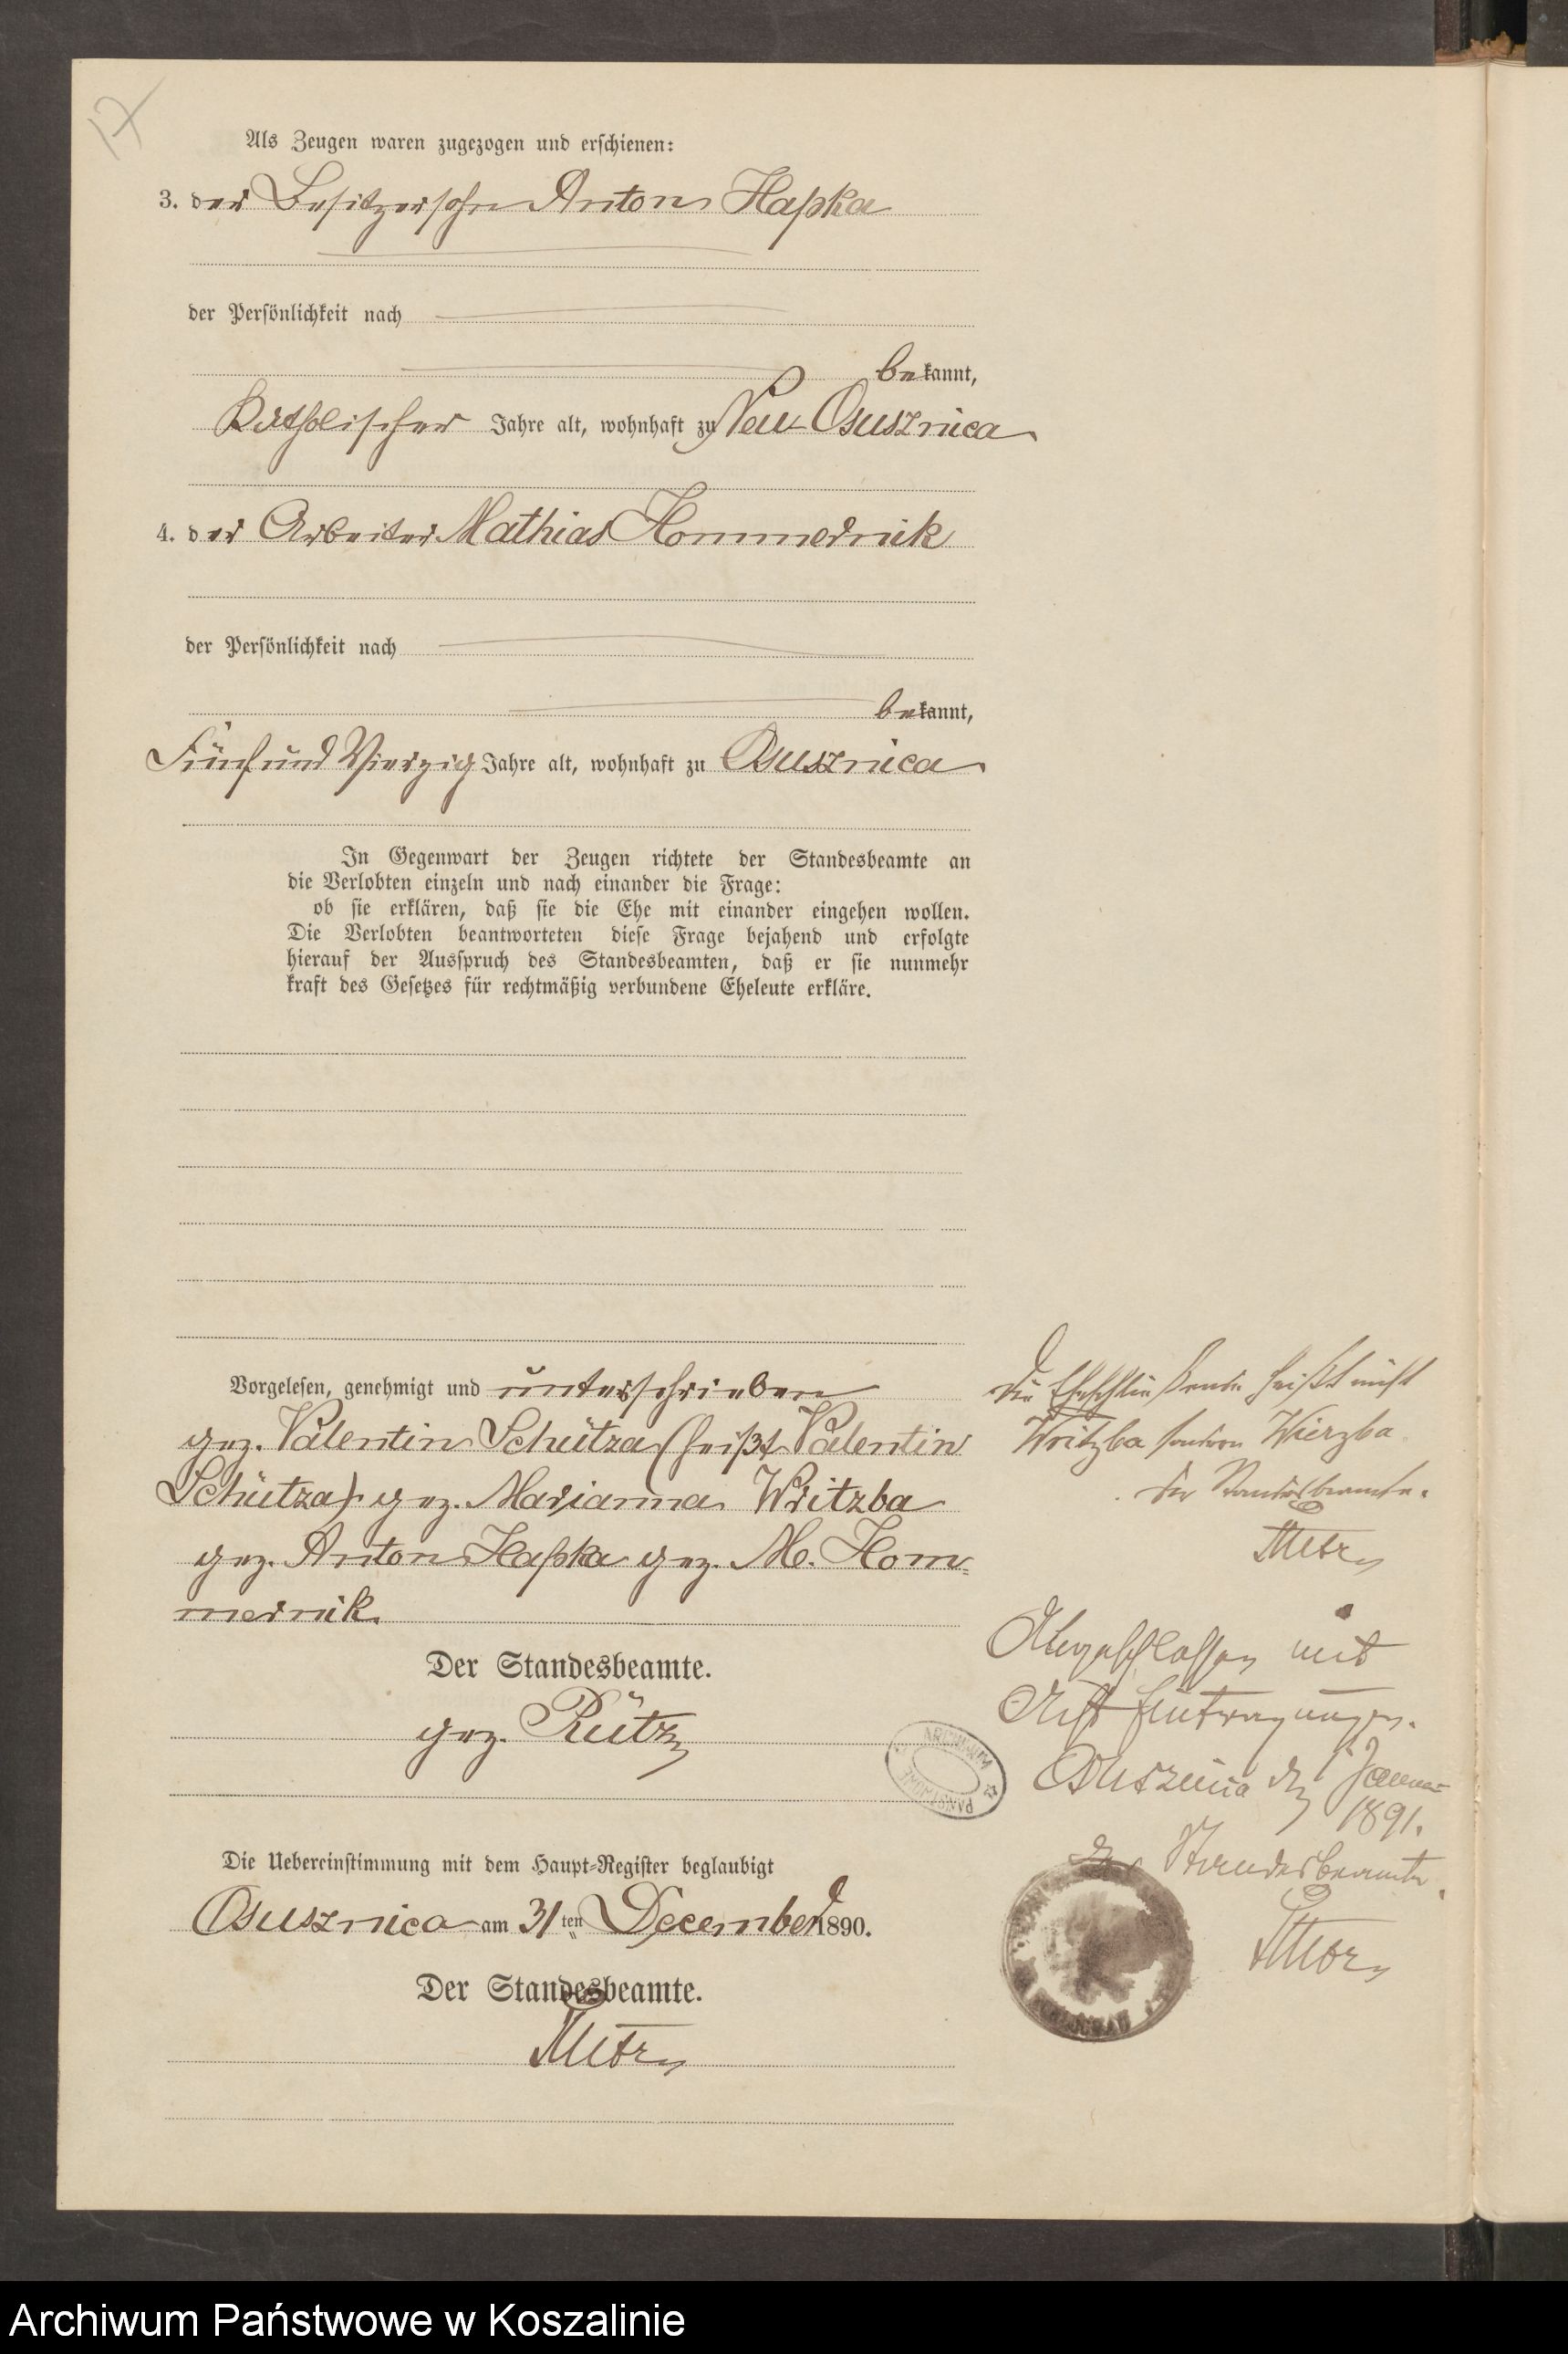 17
Als Zeugen waren zugezogen und erschienen:
3. der Besitzersohn Anton Hapka
der Persönlichkeit nach
bekannt,
Katholischer Jahre alt, wohnhaft zu Neu Osusznica
4. der Arbeiter Mathias Hommernik
der Persönlichkeit nach
bekannt,
Fünfund Vierzig Jahre alt, wohnhaft zu Osusznica
In Gegenwart der Zeugen richtete der Standesbeamte an
die Verlobten einzeln und nach einander die Frage:
ob sie erklären, daß sie die Ehe mit einander eingehen wollen.
Die Verlobten beantworteten diese Frage bejahend und erfolgte
hierauf der Ausspruch des Standesbeamten, daß er sie nunmehr
kraft des Gesetzes für rechtmäßig verbundene Eheleute erkläre.
Vorgelesen, genehmigt und unterschrieben
gez. Valentin Schütza (heißt Valentin
Schütza) gez. Marianna Writzba
gez. Anton Hapka gez. M. Hom-
mernik.
Der Standesbeamte.
gez. Rütz
Die Uebereinstimmung mit dem Haupt-Register beglaubigt
Osusznica am 31ten December 1890.
Der Standesbeamte.
Die Eheschließende heißt nicht
Writzba sondern Wierzba
Der Standesbeamte.
Abgeschlossen mit
Acht Eintragungen.
Osusznica den 1 Januar
1891.
Der Standesbeamte.
ARCHIWUM PAŃSTWOWE
Archiwum Państwowe w Koszalinie